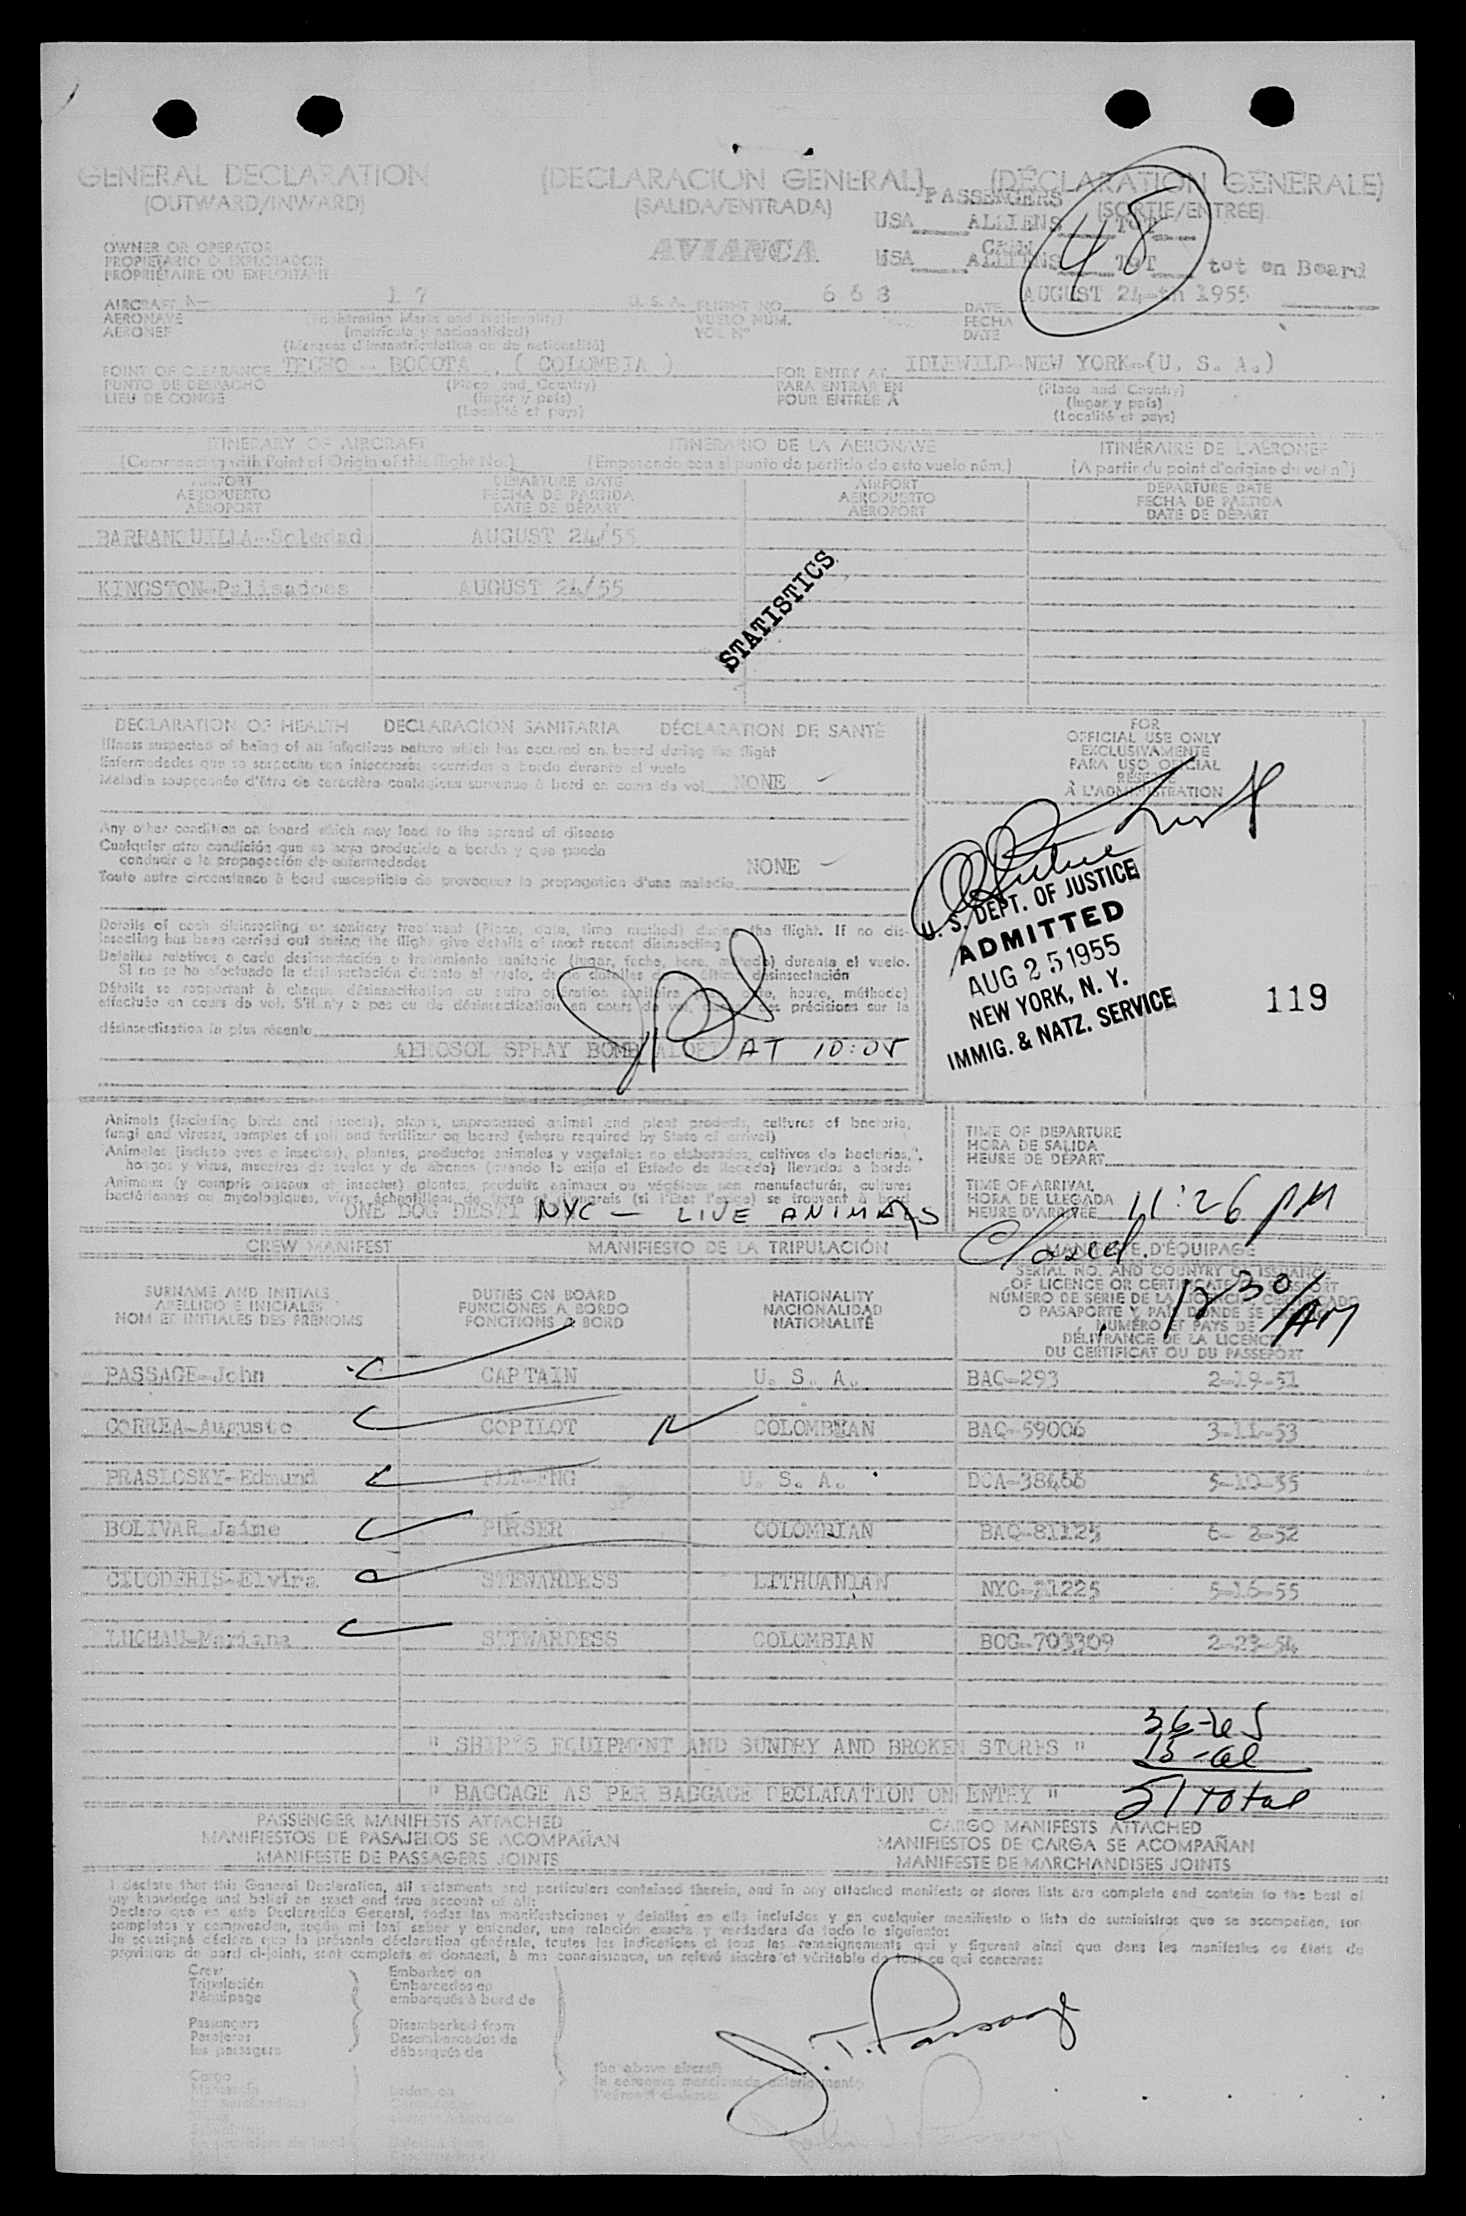 GENERAL DECLARATION (DECLARACION GENERAL) (DÉCLARATION GENERALE)
(OUTWARD/INWARD) (SALIDA/ENTRADA) (SORTIE/ENTREE)
PASSENGERS
USA ALLIENS TOT
48
OWNER OR OPERATOR
PROPIETARIO O EXPLOTADOR
PROPRIÉTAIRE OU EXPLOITANT
AVIANCA
CREW
USA ALLIENS TOT tot on Board
AIRCRAFT
AERONAVE
AERONEF
17 U. S. A. FLIGHT NO. 668
VUELO NUM.
VOL N°
DATE AUGUST 24-th 1955
FECHA
DATE
(Registration Marks and Nationality)
(matrícula y nacionalidad)
(Marques d'immatriculation ou de nationalité)
POINT OF CLEARANCE TECHO - BOGOTA , ( COLOMBIA ) FOR ENTRY AT IDLEWILD-NEW YORK-(U. S. A.)
PUNTO DE DESPACHO (Place and Country) PARA ENTRAR EN (Place and Country)
LIEU DE CONGÉ (lugar y país) POUR ENTRÉE À (lugar y país)
(Localité et pays) (Localité et pays)
ITINERARY OF AIRCRAFT ITINERARIO DE LA AERONAVE ITINÉRAIRE DE L'AÉRONEF
(Commencing with Point of Origin of this flight No.) (Empezando con el punto de partida de este vuelo núm.) (A partir du point d'origine du vol n°)
AIRPORT DEPARTURE DATE AIRPORT DEPARTURE DATE
AEROPUERTO FECHA DE PARTIDA AEROPUERTO FECHA DE PARTIDA
AÉROPORT DATE DE DÉPART AÉROPORT DATE DE DÉPART
BARRANQUILLA-Soledad AUGUST 24/55
KINGSTON-Palisadoes AUGUST 24/55
STATISTICS
DECLARATION OF HEALTH DECLARACIÓN SANITARIA DÉCLARATION DE SANTÉ
Illness suspected of being of an infectious nature which has occured on board during the flight
Enfermedades que se sospecha son infecciosas ocurridas a bordo durante el vuelo
Maladie soupçonnée d'être de caractère contagieux survenue à bord en cours de vol NONE
Any other condition on board which may lead to the spread of disease
Cualquier otra condición que se haya producido a bordo y que pueda
conducir a la propagación de enfermedades
Toute autre circonstance à bord susceptible de provoquer la propagation d'une maladie NONE
Details of each disinsecting or sanitary treatment (Place, date, time method) during the flight. If no dis-
insecting has been carried out during the flight give details of most recent disinsecting
Detalles relativos a cada desinsectación o tratamiento sanitario (lugar, fecha, hora, método) durante el vuelo.
Si no se ha efectuado la desinsectación durante el vuelo, de los detalles de la última desinsectación
Détails se rapportant à chaque désinsectisation ou autre opération sanitaire date, heure, méthode)
effectuée en cours de vol. S'il n'y a pas eu de désinsectisation en cours de vol, des précisions sur la
désinsectisation la plus récente
AEROSOL SPRAY BOMB AT 10:05
FOR
OFFICIAL USE ONLY
EXCLUSIVAMENTE
PARA USO OFICIAL
RÉSERVÉ
À L'ADMINISTRATION
U. S. DEPT. OF JUSTICE
ADMITTED
AUG 25 1955
NEW YORK, N. Y.
IMMIG. & NATZ. SERVICE
119
Animals (including birds and insects), plants, unprocessed animal and plant products, cultures of bacteria,
fungi and viruses, samples of soil and fertilizer on board (where required by State of arrival)
Animales (incluso aves e insectos), plantas, productos animales y vegetales no elaborados, cultivos de bacterias,
hongos y virus, muestras de suelos y de abonos (cuando lo exija el Estado de llegada) llevados a bordo
Animaux (y compris oiseaux et insectes) plantes, produits animaux ou végétaux non manufacturés, cultures
bactériennes ou mycologiques, virus, échantillons de terre et d'engrais (si l'État l'exige) se trouvant à bord
ONE DOG DESTI NYC - LIVE ANIMALS
TIME OF DEPARTURE
HORA DE SALIDA
HEURE DE DÉPART
TIME OF ARRIVAL
HORA DE LLEGADA
HEURE D'ARRIVÉE 11:26 PM
Closed. 12 30/AM
CREW MANIFEST MANIFIESTO DE LA TRIPULACIÓN MANIFESTE D'ÉQUIPAGE
SURNAME AND INITIALS
APELLIDO E INICIALES
NOM ET INITIALES DES PRÉNOMS
DUTIES ON BOARD
FUNCIONES A BORDO
FONCTIONS A BORD
NATIONALITY
NACIONALIDAD
NATIONALITÉ
SERIAL NO. AND COUNTRY OF ISSUANCE
OF LICENCE OR CERTIFICATE OR PASSPORT
NÚMERO DE SERIE DE LA LICENCIA, CERTIFICADO
O PASAPORTE Y PAÍS DONDE SE
NUMÉRO ET PAYS DE
DÉLIVRANCE DE LA LICENCE
DU CERTIFICAT OU DU PASSEPORT
PASSAGE-John CAPTAIN U. S. A. BAC-293 2-19-51
CORREA-Augusto COPILOT COLOMBIAN BAC-59006 3-11-53
PRASLOSKY-Edmund FLT-ENG U. S. A. DCA-38466 5-10-55
BOLIVAR Jaime PURSER COLOMBIAN BAC-81125 6- 2-52
CIUODERIS-Elvira STEWARDESS LITHUANIAN NYC-71225 5-16-55
LUCHAU-Mariana STEWARDESS COLOMBIAN BOG-703309 2-23-54
36-us
" SHIP'S EQUIPMENT AND SUNDRY AND BROKEN STORES " 15-al
" BAGGAGE AS PER BAGGAGE DECLARATION ON ENTRY " 51 Total
PASSENGER MANIFESTS ATTACHED CARGO MANIFESTS ATTACHED
MANIFIESTOS DE PASAJEROS SE ACOMPAÑAN MANIFIESTOS DE CARGA SE ACOMPAÑAN
MANIFESTE DE PASSAGERS JOINTS MANIFESTE DE MARCHANDISES JOINTS
I declare that this General Declaration, all statements and particulars contained therein, and in any attached manifests or stores lists are complete and contein to the best of
my knowledge and belief an exact and true account of all:
Declaro que en esta Declaración General, todas las manifestaciones y detalles en ella incluídos y en cualquier manifiesto o lista de suministros que se acompañen, son
completos y comprenden, según mi leal saber y entender, una relación exacta y verdadera de todo lo siguiente:
Je soussigné déclare que la présente déclaration générale, toutes les indications et tous les renseignements qui y figurent ainsi que dans les manifestes ou états de
provisions de bord ci-joints, sont complets et donnent, à ma connaissance, un relevé sincère et véritable de tout ce qui concerne:
Crew Embarked on
Tripulación Embarcados en
l'équipage embarqués à bord de
Passengers Disembarked from
Pasajeros Desembarcados de
les passagers débarqués de
the above aircraft
Cargo
J. T. Passage